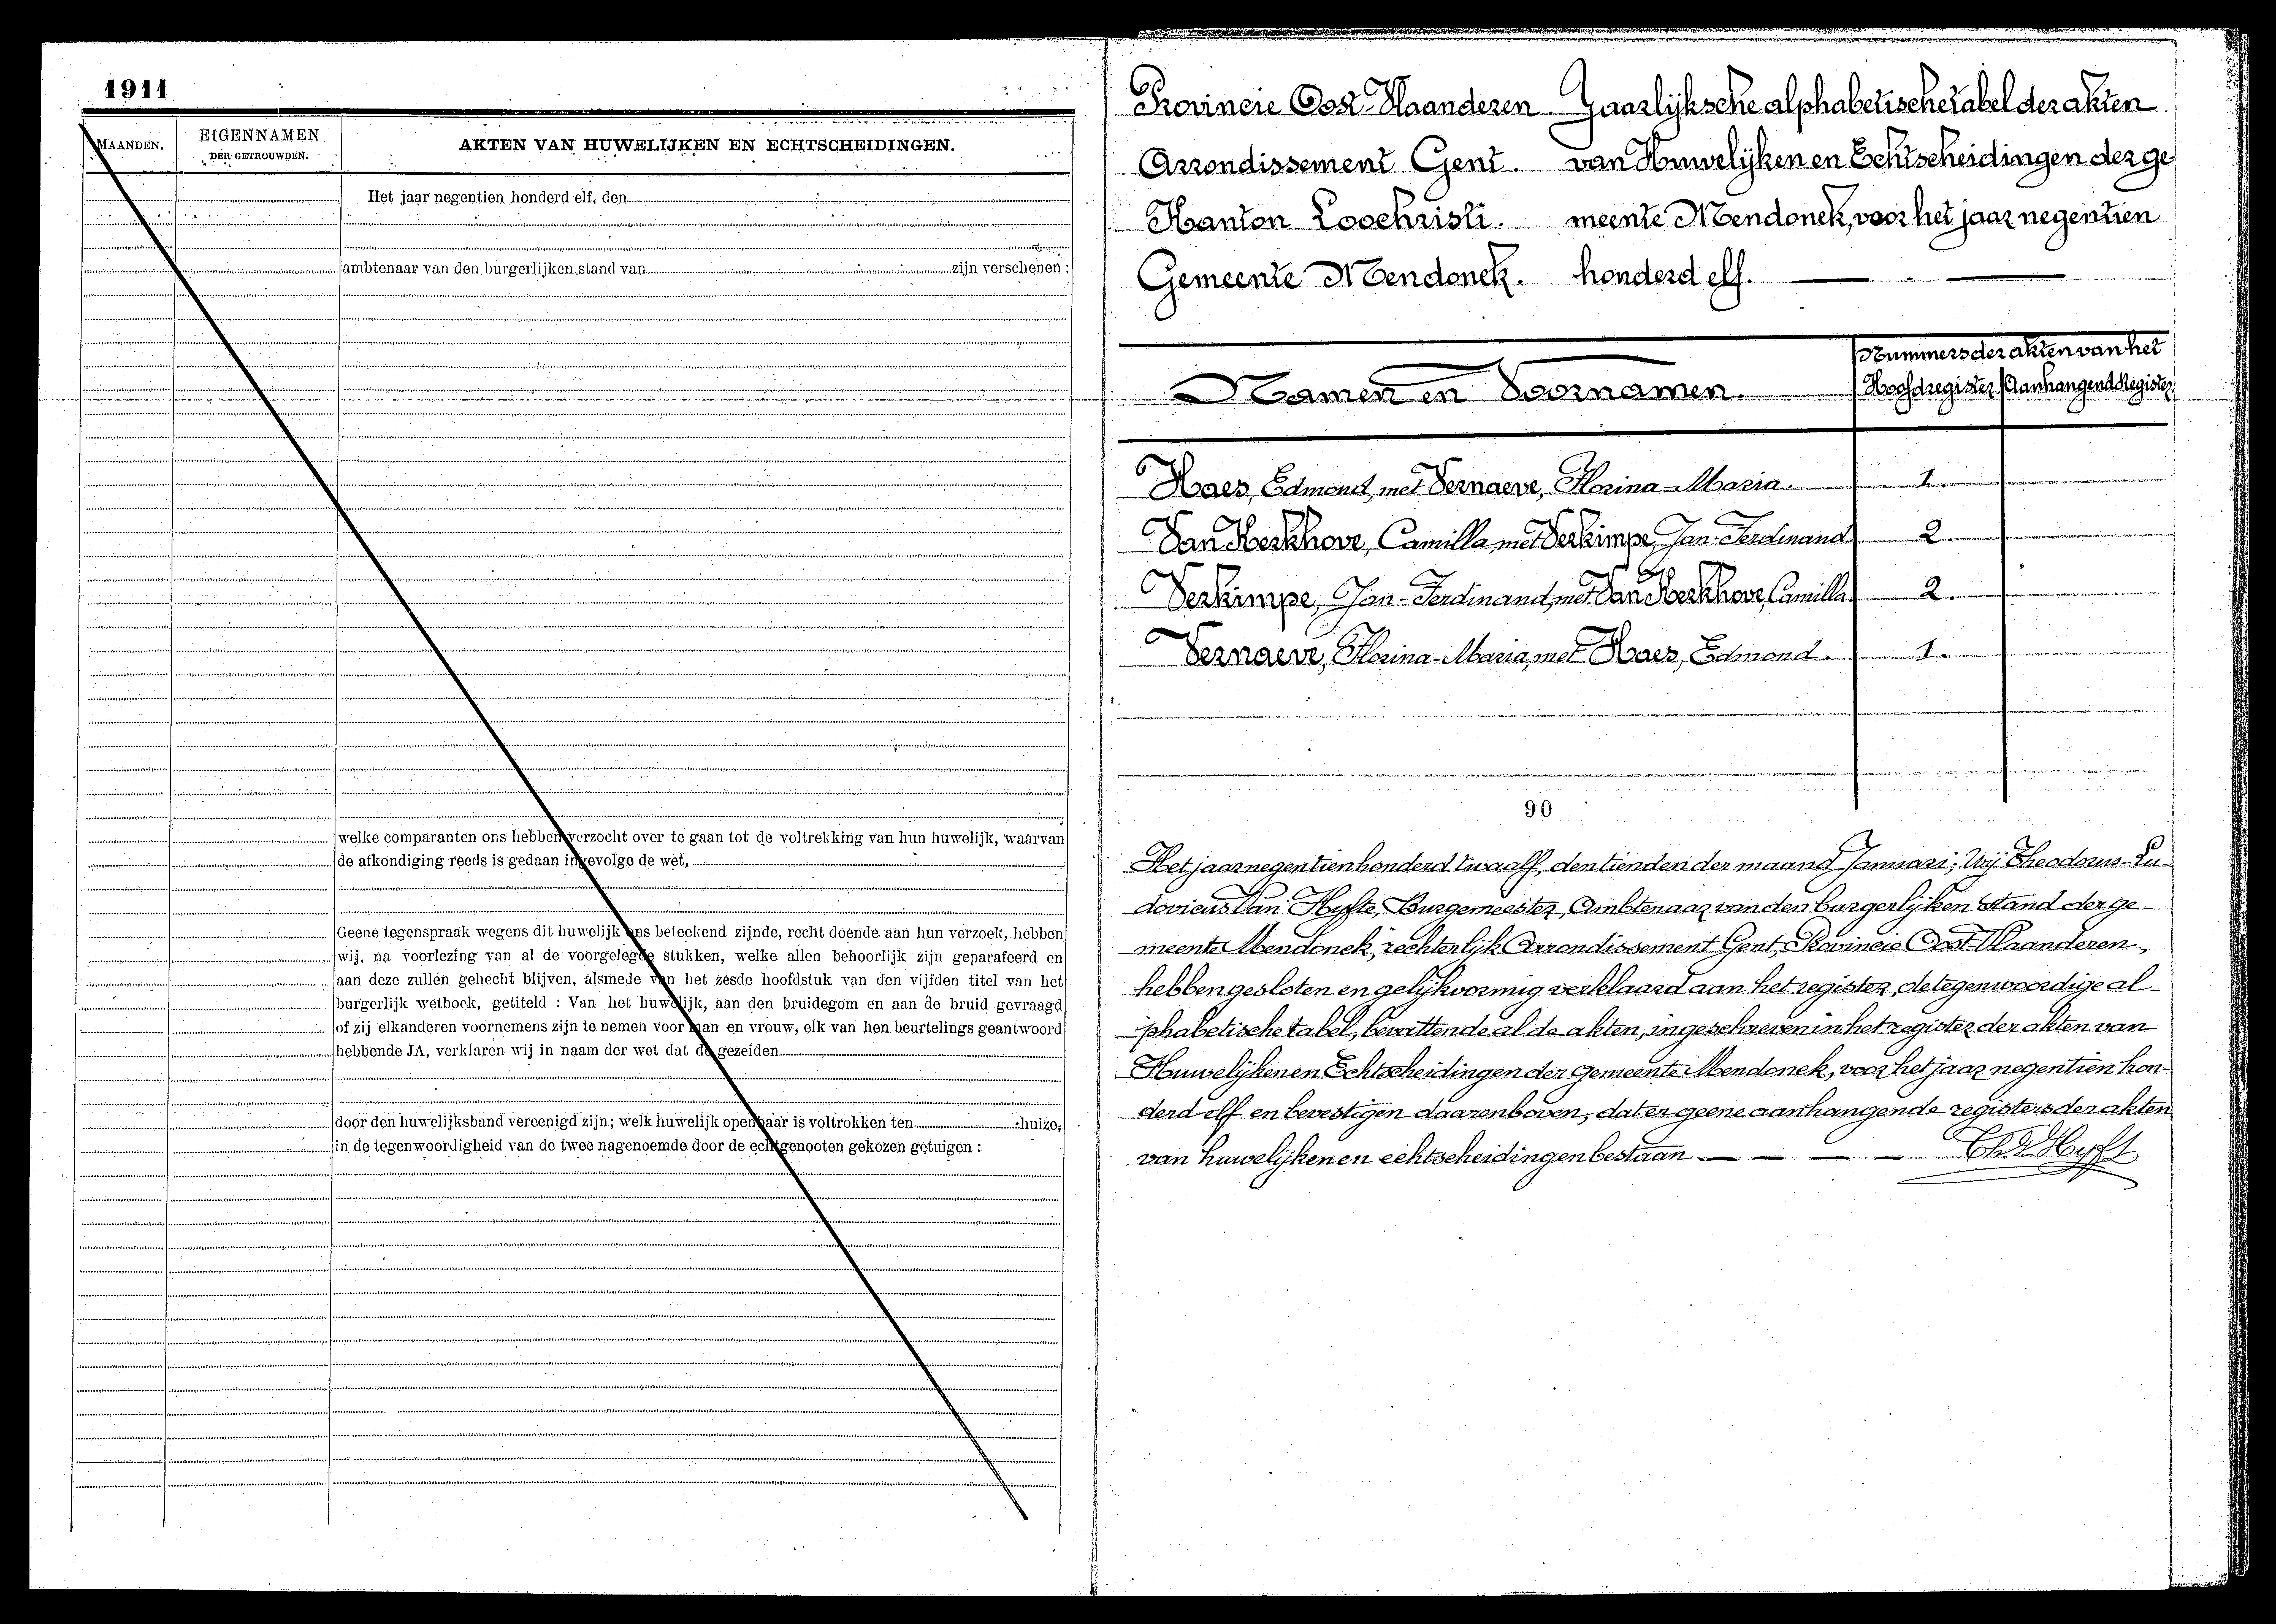 1911
MAANDEN.
EIGENNAMEN
DER GETROUWDEN.
AKTEN VAN HUWELIJKEN EN ECHTSCHEIDINGEN.
Het jaar negentien honderd elf, den
ambtenaar van den burgerlijken stand van zijn verschenen :
welke comparanten ons hebben verzocht over te gaan tot de voltrekking van hun huwelijk, waarvan
de afkondiging reeds is gedaan ingevolge de wet,
Geene tegenspraak wegens dit huwelijk ons beteekend zijnde, recht doende aan hun verzoek, hebben
wij, na voorlezing van al de voorgelegde stukken, welke allen behoorlijk zijn geparafeerd en
aan deze zullen gehecht blijven, alsmede van het zesde hoofdstuk van den vijfden titel van het
burgerlijk wetboek, getiteld : Van het huwelijk, aan den bruidegom en aan de bruid gevraagd
of zij elkanderen voornemens zijn te nemen voor man en vrouw, elk van hen beurtelings geantwoord
hebbende JA, verklaren wij in naam der wet dat de gezeiden
door den huwelijksband vereenigd zijn; welk huwelijk openbaar is voltrokken ten huize,
in de tegenwoordigheid van de twee nagenoemde door de echtgenooten gekozen getuigen :
Provincie Oost-Vlaanderen. Jaarlijksche alphabetische tabel der akten
Arrondissement Gent. van Huwelijken en Echtscheidingen der ge
Kanton Loochristi. meente Mendonck, voor het jaar negentien
Gemeente Mendonck. honderd elf.
Namen en Voornamen.
Nummers der akten van het
Hoofdregister Aanhangend Register
Haes, Edmond, met Vernaeve, Florina-Maria. 1.
Van Kerkhove, Camilla, met Verkimpe, Jan-Ferdinand 2.
Verkimpe, Jan-Ferdinand, met Van Kerkhove, Camilla 2.
Vernaeve, Florina-Maria, met Haes, Edmond. 1.
90
Het jaar negentien honderd twaalf, den tienden der maand Januari; Wij Theodorus-Lu-
dovicus Van Hyfte, Burgemeester, Ambtenaar van den burgerlijken Stand der ge-
meente Mendonck, rechterlijk Arrondissement Gent, Provincie Oost-Vlaanderen,
hebben gesloten en gelijkvormig verklaard aan het register, de tegenwoordige al-
phabetische tabel, bevattende al de akten, ingeschreven in het register der akten van
Huwelijken en Echtscheidingen der Gemeente Mendonck, voor het jaar negentien hon-
derd elf en bevestigen daarenboven, dat er geene aanhangende registers der akten
van huwelijken en echtscheidingen bestaan.
Th. V. Hyfte